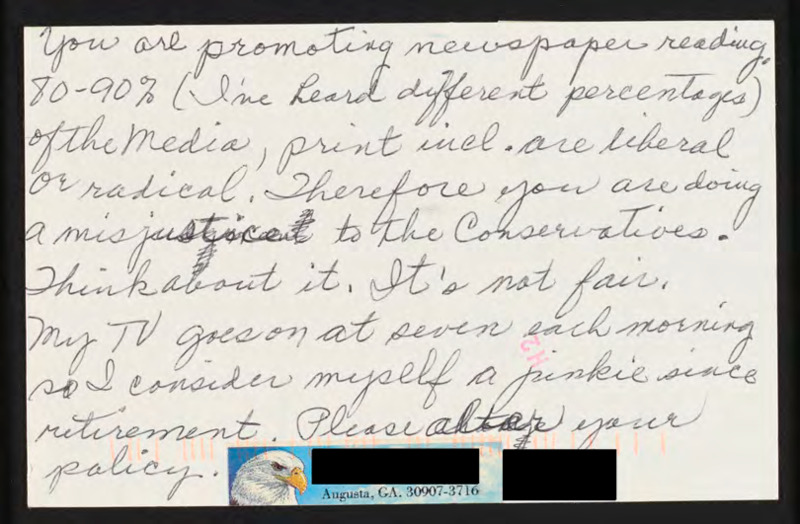 You are promoting newspaper reading.
80-90% (I've heard different percentages)
of the Media, print incl. are liberal
or radical. Therefore you are doing
a misjustice to the Conservatives.
Think about it. It's not fair.
My TV goes on at seven each morning
so I consider myself a junkie since
retirement. Please alter your
policy.
Augusta, GA. 30907-3716